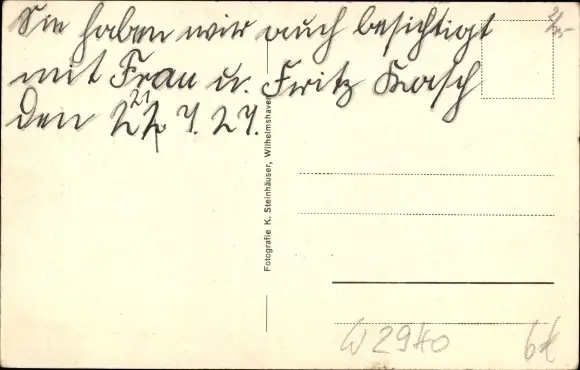 Die haben wir auch besichtigt
mit Frau u. Fritz Kasch
21
den 22. 7. 27.
Fotografie K. Steinhäuser, Wilhelmshaven
W 2940
6€